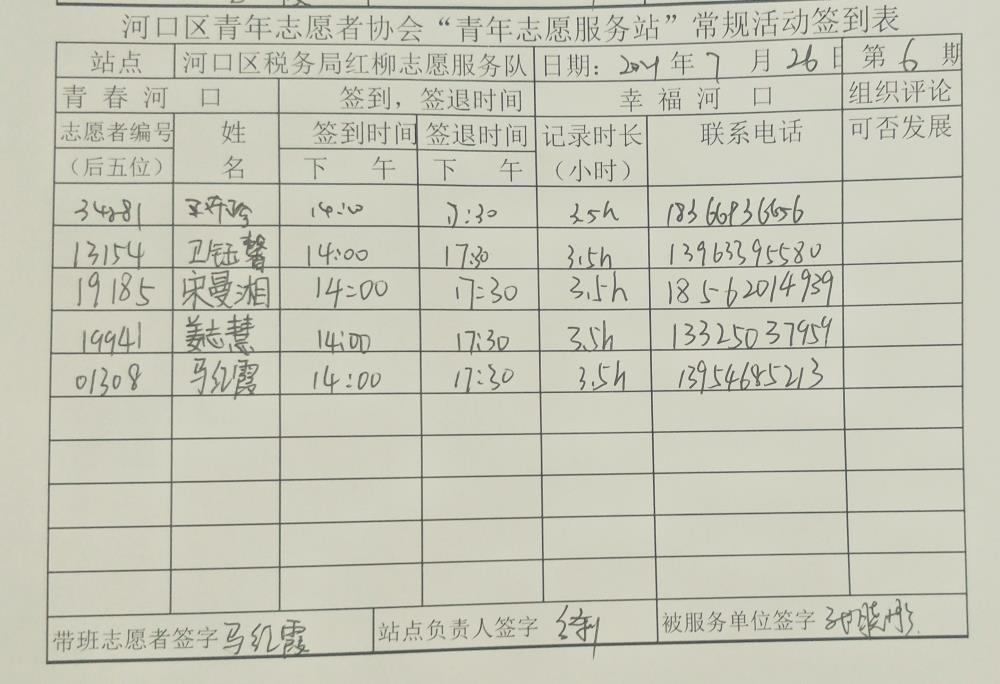 河口区青年志愿者协会“青年志愿服务站”常规活动签到表
站点 河口区税务局红柳志愿服务队 日期：2021年7月26日 第6期
青春河口 签到，签退时间 幸福河口 组织评论
志愿者编号 姓 签到时间 签退时间 记录时长 联系电话 可否发展
（后五位） 名 下午 下午 （小时）
34281 14:00 17:30 3.5h 18366936656
13154 卫钰馨 14:00 17:30 3.5h 13963395580
19185 宋曼湘 14:00 17:30 3.5h 18562014939
19941 姜志慧 14:00 17:30 3.5h 13325037959
01308 马红霞 14:00 17:30 3.5h 13954685213
带班志愿者签字 马红霞 站点负责人签字 被服务单位签字